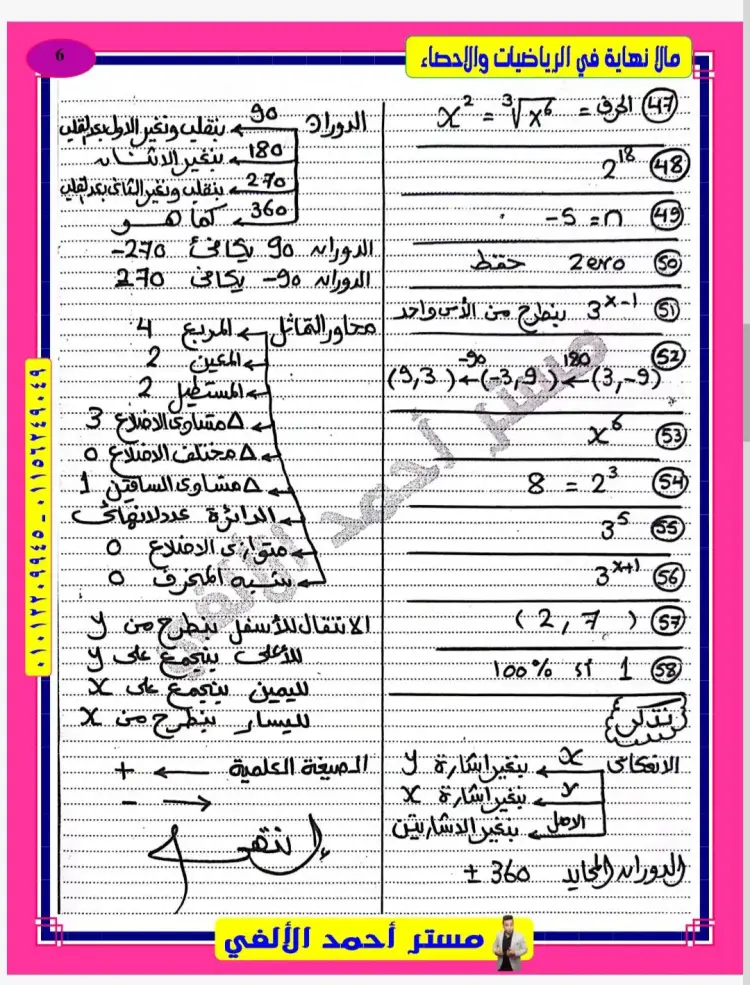 6
مالا نهاية في الرياضيات والاحصاء
47 الحرف = x² = ³√x⁶
48 2¹⁸
49 -5 = n
50 zero فقط
51 3ˣ⁻¹ بنطرح من الأس واحد
52 (3,-9) ← 180 (-3,9) ← -90 (9,3)
53 x⁶
54 8 = 2³
55 3⁵
56 3ˣ⁺¹
57 (2, 7)
58 1 أى 100%
تذكر
الانعكاس x بنغير اشارة y
y بنغير اشارة x
الاصل بنغير الاشارتين
الدوران المحايد ± 360
الدوران 90 بنقلب ونغير الاول بعد القلب
180 بنغير الاتنان
270 بنقلب ونغير الثانى بعد القلب
360 كما هو
الدوران 90 يكافئ -270
الدوران -90 يكافئ 270
محاور التماثل المربع 4
المعين 2
المستطيل 2
Δ متساوى الاضلاع 3
Δ مختلف الاضلاع 0
Δ متساوى الساقين 1
الدائرة عدد لانهائى
متوازى الاضلاع 0
شبه المنحرف 0
الانتقال للأسفل بنطرح من y
للأعلى بنجمع على y
لليمين بنجمع على x
لليسار بنطرح من x
الصيغة العلمية ← +
→ -
إنتهى
مستر أحمد الألفي
٠١٠١٢٢٠٩٩٤٥ - ٠١١٥٦٢٤٩٠٤٩
مستر أحمد الألفي